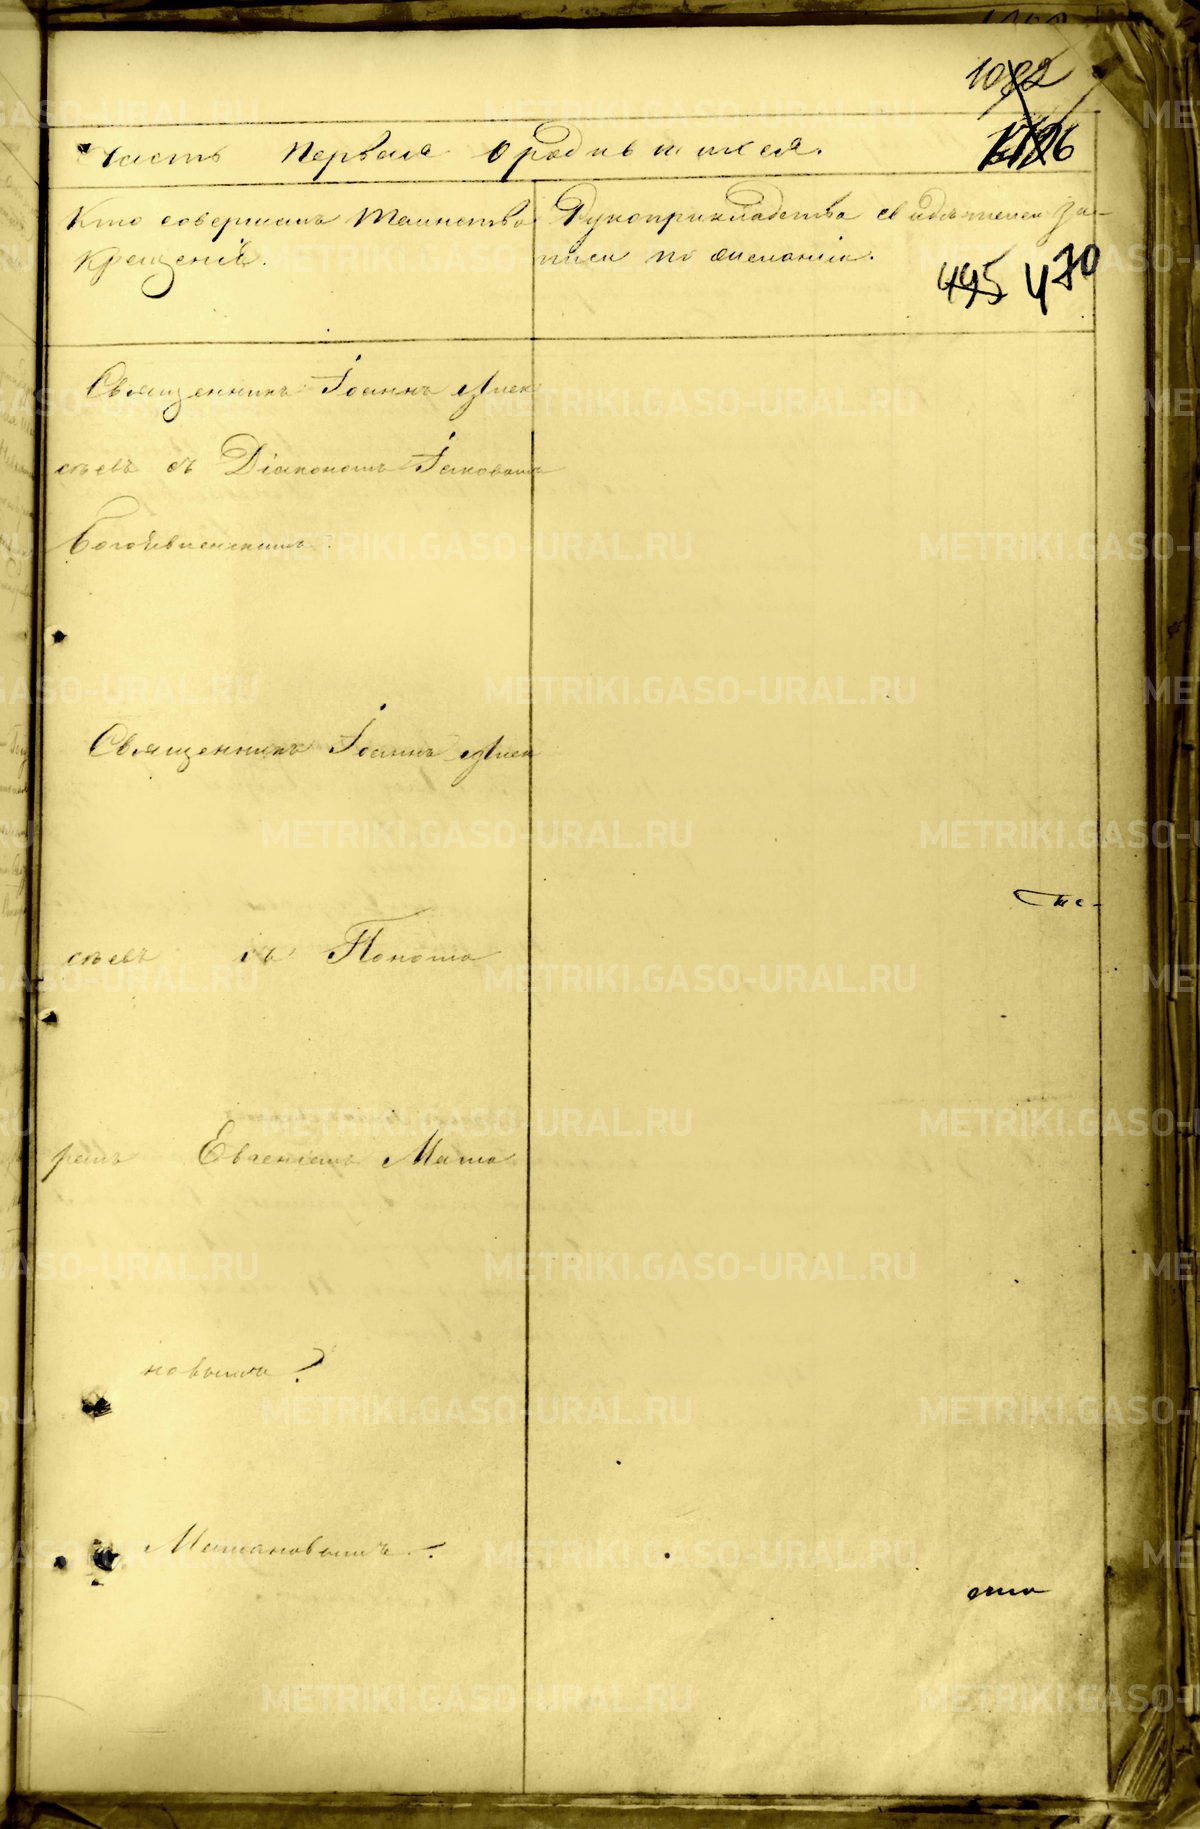 1082
Часть первая о родившихся.
1726
Кто совершалъ таинство
крещенія.
Рукоприкладство свидѣтелей за-
писи по желанію.
445 470
Священникъ Іоаннъ Алек
сѣевъ съ Діакономъ Іаковомъ
Богоявленскимъ.
Священникъ Іоаннъ Алек
сѣевъ съ Понома
ремъ Евгеніемъ Мама
новымъ
Мамановымъ.
METRIKI.GASO-URAL.RU